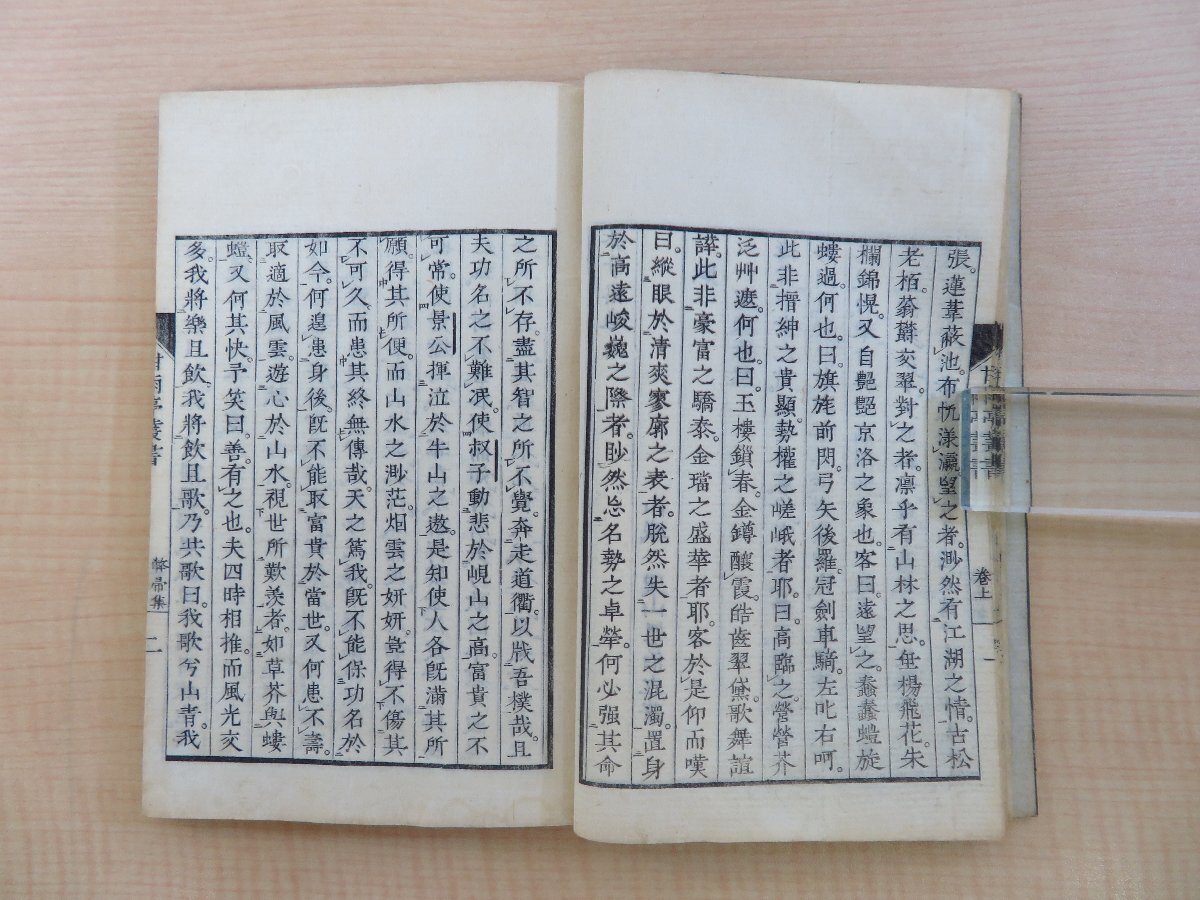 張。蓮葦蔽池。布帆漾瀛。望之者。渺然有江湖之情。古松
老栢。蓊欝交翠。對之者。凛乎有山林之思。垂楊飛花。朱
欄錦幌。又自艷艷京洛之象也。客曰。遠望之。蠢蠢螘旋
螻過。何也。曰。旗旄前閃。弓矢後羅。冠劍車騎。左叱右呵。
此非搢紳之貴顯。勢權之嵯峨者耶。曰。高臨之。營營芥
泛艸遮。何也。曰。玉樓鎖春。金鐏釀霞。皓齒翠黛。歌舞諠
譁。此非豪富之驕泰。金璫之盛華者耶。客於是仰而嘆
曰。縱眼於清爽寥廓之表者。脫然失一世之混濁。置身
於高遠峻巍之際者。眇然忘名勢之卓犖。何必强其命
卷上
之所不存。盡其智之所不覺。奔走道衢。以戕吾樸哉。且
夫功名之不難。泯使叔子動悲於峴山之高。富貴之不
可常。使景公揮泣於牛山之遨。是知使人各既滿其所
願。得其所便。而山水之渺茫。烟雲之妍妍。豈得不傷其
不可久。而患其終無傳哉。天之篤我。既不能保功名於
如今。何遑患身後。既不能取富貴於當世。又何患不壽。
取適於風雲。遊心於山水。視世所歎羨者。如草芥與螻
螘。又何其快。予笑曰。善有之也。夫四時相推。而風光交
多。我將樂且飲。我將飲且歌。乃共歌曰。我歌兮山青。我
甘雨亭叢書
弊帚集
二